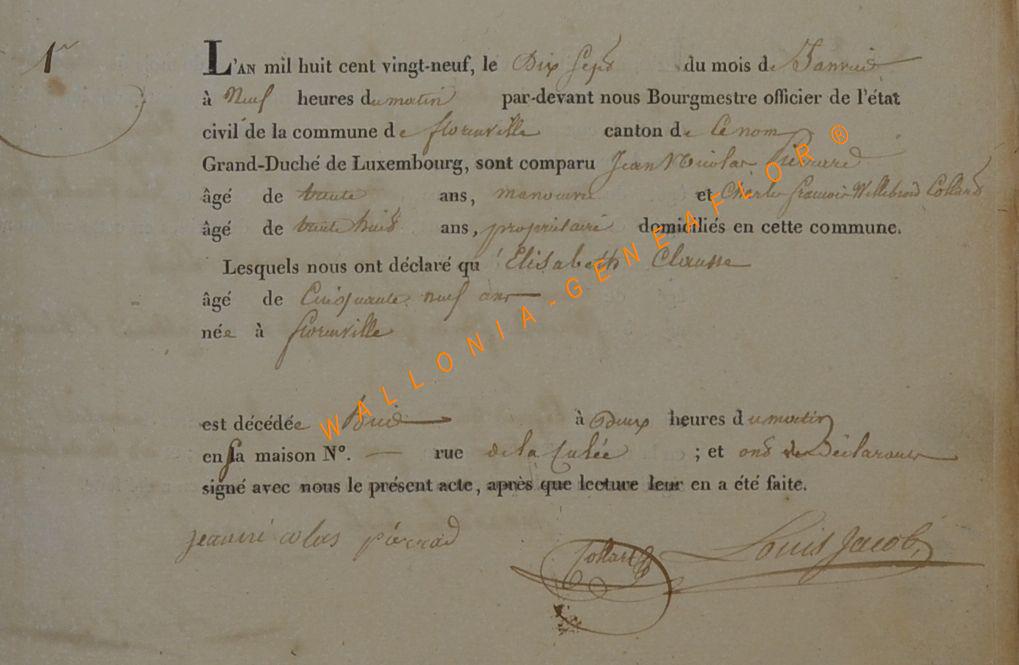 1r
L'AN mil huit cent vingt-neuf, le Dix Sept du mois de Janvier
à Neuf heures du matin par-devant nous Bourgmestre officier de l'état
civil de la commune de florenville canton de Ce nom
Grand-Duché de Luxembourg, sont comparu Jean Nicolas Pierard
âgé de trente ans, manouvrier et Charles francois Willebrod Collard
âgé de trente huit ans, propriétaire domiciliés en cette commune.
Lesquels nous ont déclaré qu'Elisabeth Clausse
âgé de Cinquante neuf ans
née à florenville
est décédée à Deux heures du matin
en sa maison N°. — rue de la Culée ; et ont les Déclarants
signé avec nous le présent acte, après que lecture leur en a été faite.
jean nicolas piérrad
Collard Louis Jacob
WALLONIA-GENEAFLOR®